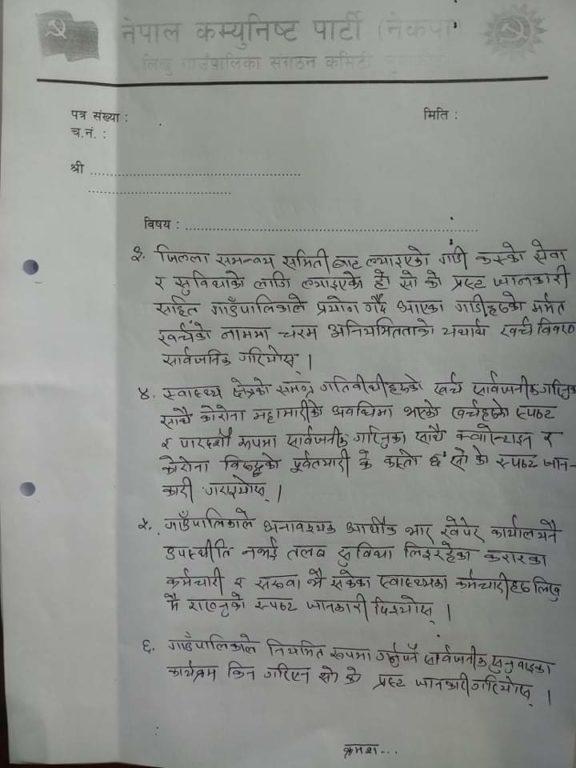 नेपाल कम्युनिष्ट पार्टी (नेकपा
लिखु गाउँपालिका संगठन कमिटी
पत्र संख्या :
मिति :
च.नं. :
श्री ........................................................
........................................
विषय : ........................................................................
३. जिल्ला समन्वय समिती बाट ल्याइएको गाडी कस्को सेवा
र सुविधाको लागि ल्याइएको हो सो को प्रष्ट जानकारी
सहित गाउँपालिकाले प्रयोग गर्दै आएका गाडीहरुको मर्मत
खर्चको नाममा चरम अनियमितताको यथार्थ खर्च विवरण
सार्वजनिक गरियोस् ।
४. स्वास्थ्य क्षेत्रको समग्र गतिवीधीहरुको खर्च सार्वजनीक गरिनुका
साथै कोरोना महामारीको अवधिमा भएको खर्चहरुको स्पष्ट
र पारदर्शी रुपमा सार्वजनीक गरिनुका साथै क्वारेन्टाइन र
कोरोना विरुद्धको पूर्वतयारी के कस्तो छ सो को स्पष्ट जान-
कारी गराइयोस् ।
५. गाउँपालिकाले अनावश्यक आर्थीक भार थेपेर कार्यालयमै
उपस्थीति नभई तलब सुविधा लिइरहेका करारका
कर्मचारी र सरुवा भै सकेका स्वास्थ्यका कर्मचारीहरु लिखु
मै राख्नुको स्पष्ट जानकारी दिइयोस् ।
६. गाउँपालिकाले नियमित रुपमा गर्नुपर्ने सार्वजनीक सुनुवाइका
कार्यक्रम किन गरिएन सो को प्रष्ट जानकारी गरियोस् ।
क्रमश...